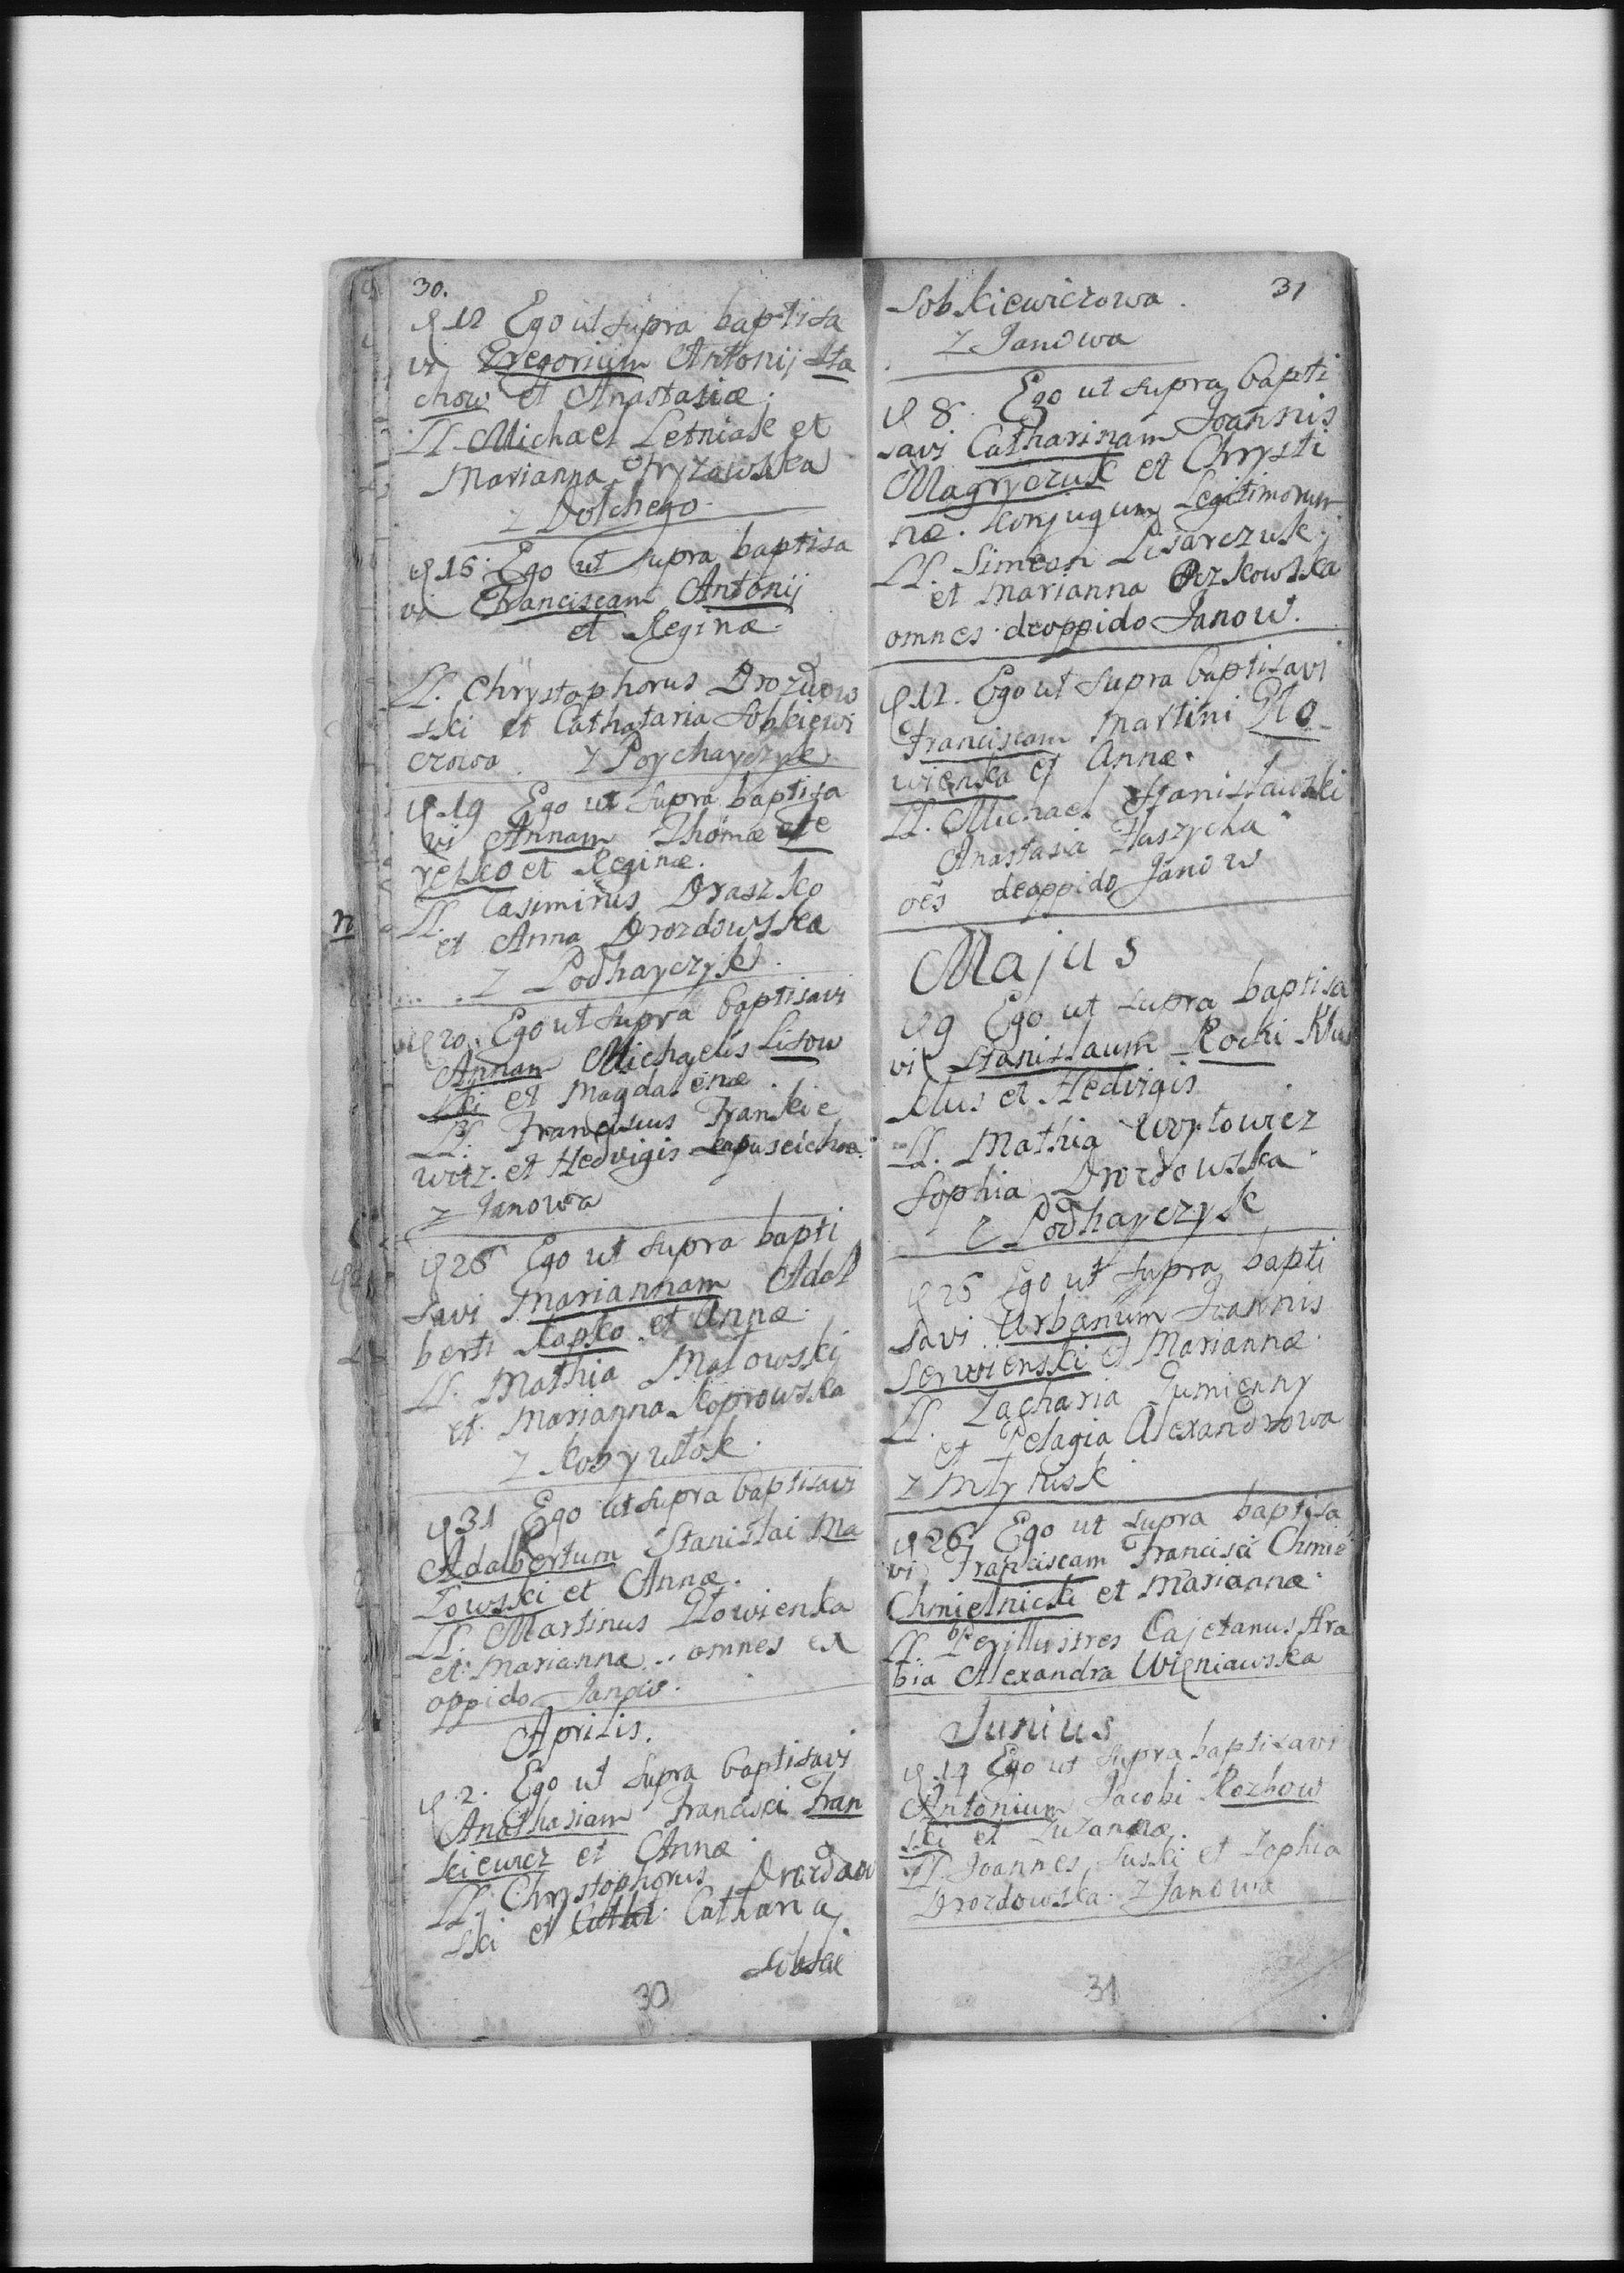 30.
12 Ego ut supra baptisa
vi Gregorium Antonij Sta
chow et Anastasiæ.
LL. Michael Letniak et
Marianna Stryzowska
z Dolchego.
15. Ego ut supra baptisa
vi Franciscam Antonij
et Reginæ.
LL. Chrystophorus Drozdow
ski et Cathataria Sobkiewi
czowa. z Poychayczyk
19 Ego ut supra baptisa
vi Annam Thomæ
et Reginæ.
LL. Casimirus Draszko
et Anna Drozdowska
z Podhayczyk.
n
20. Ego ut supra baptisavi
Annam Michaelis Lisow
ski et Magdalenæ.
LL. Franciscus Frankie
witz. et Hedvigis Lapuscichoa
z Janowa
26 Ego ut supra bapti
savi Mariannam Adal
berti Kapko et Annæ.
LL. Mathia Malowski
et Marianna Koprowska
z Kobywłok.
31 Ego ut supra baptisavi
Adalbertum Stanislai Ma
łowski et Annæ.
LL. Martinus Głowienka
et Marianna .. omnes ex
oppido Janow.
Aprilis.
2. Ego ut supra baptisavi
Anathasiam Francisci Fran
kiewicz et Annæ.
LL. Chrystophorus Drozdow
ski et Cathar. Cathana
Sobkie
30
31
Sobkiewiczowa.
z Janowa
8. Ego ut supra bapti
savi Catharinam Joannis
Magryczuk et Chrysti
næ. Conjugum Legitimorum
LL. Simeon Pisarczuk
et Marianna Oczkowska
omnes deoppido Janow.
12. Ego ut supra baptisavi
Franciscam Martini Glo
wienka et Annæ.
LL. Michael Stanisławski
Anastasia Haszycka
oēs deoppido Janow
Majus
9 Ego ut supra baptisa
vi Stanislaum Rocki Klus
klus et Hedvigis
LL. Mathia Woytowicz
Sophia Drozdowska
z Podhayczyk
25 Ego ut supra bapti
savi Urbanum Joannis
Serwienski et Mariannæ.
LL. Zacharia Gumienny
et Pelagia Alexandrowa
z Młynisk
26 Ego ut supra baptisa
vi Franciscam Francisci Chmie
Chmielnicki et Mariannæ.
LL. Perillustres Cajetanus Ara
bia Alexandra Więniawska
Junius
14 Ego ut supra baptisavi
Antonium Jacobi Rozhow
ski et Zuzannæ.
LL. Joannes Suski et Sophia
Drozdowska. z Janowa
31